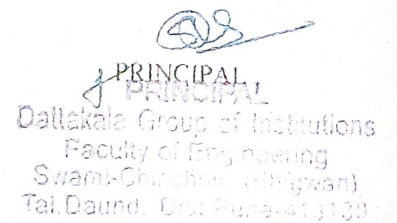 PRINCIPAL
PRINCIPAL
Dattakala Group of Institutions
Faculty of Engineering
Swami-Chincholi (Bhigwan)
Tal. Daund, Dist Pune-413130